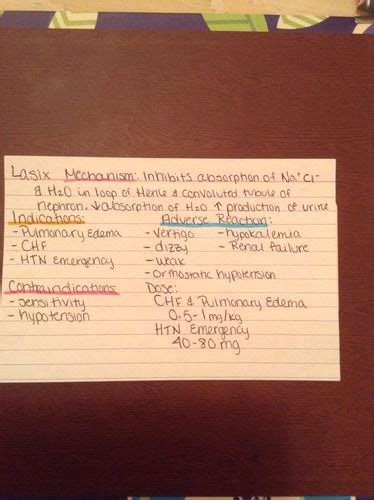 Lasix Mechanism: Inhibits absorption of Na+Cl-
& H2O in loop of Henle & convoluted tubule of
nephron. ↓absorption of H2O ↑ production of urine
Indications:
- Pulmonary Edema
- CHF
- HTN Emergency
Adverse Reaction:
- Vertigo - hypokalemia
- dizzy - Renal failure
- weak
- Orthostatic hypotension
Contraindications:
- Sensitivity
- hypotension
Dose:
CHF & Pulmonary Edema
0.5-1mg/kg
HTN Emergency
40-80 mg